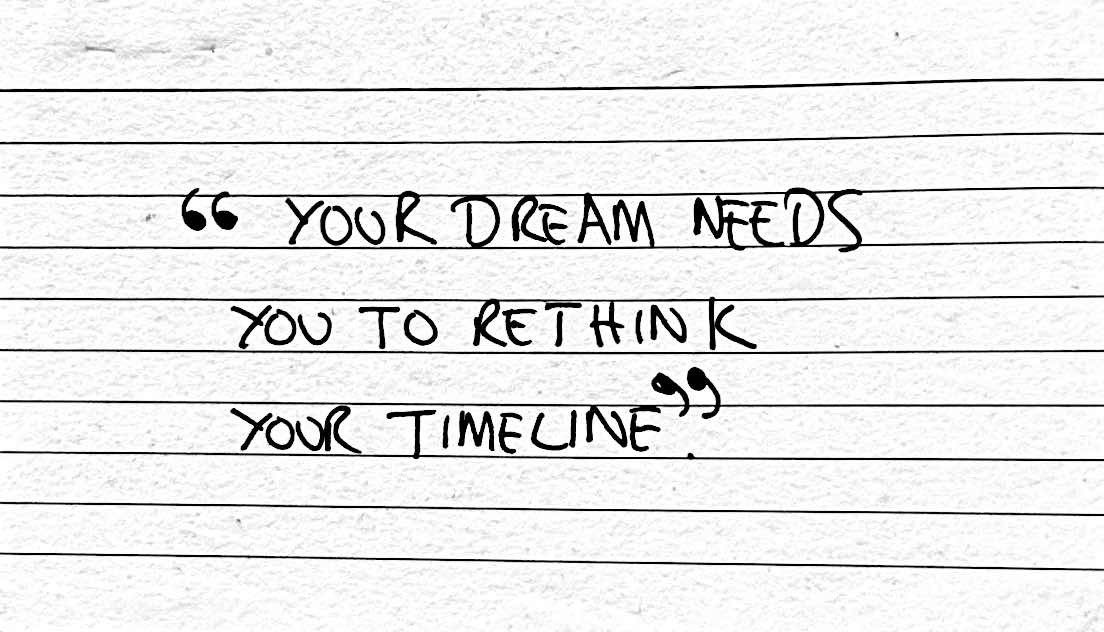 “ YOUR DREAM NEEDS
YOU TO RETHINK
YOUR TIMELINE”.